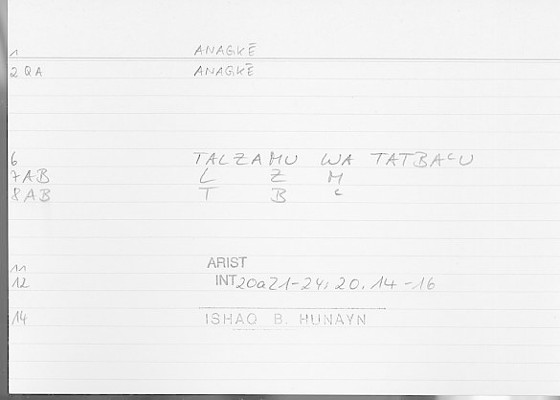 1 ANAGKĒ
2 QA ANAGKĒ
6 TALZAMU WA TATBAʿU
7AB L Z M
8AB T B ʿ
11 ARIST
12 INT 20a21-24; 20.14-16
14 ISHAQ B. HUNAYN